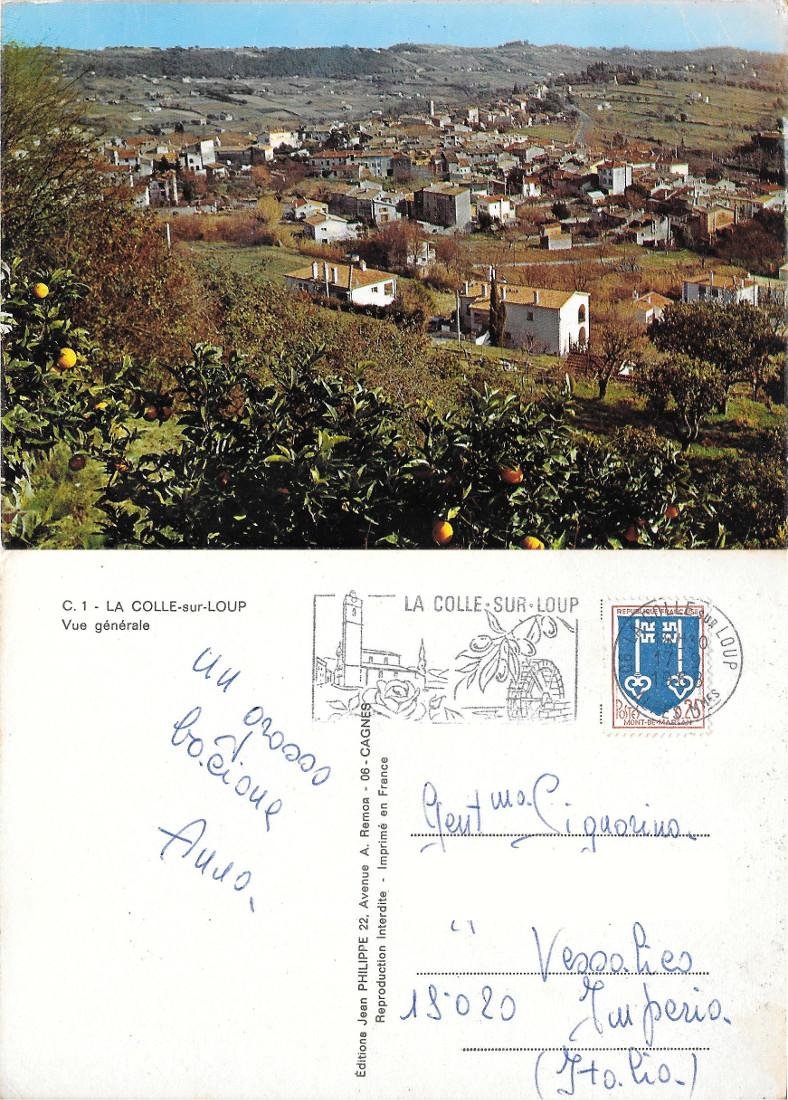 C. 1 - LA COLLE-sur-LOUP
Vue générale
LA COLLE-SUR-LOUP
REPUBLIQUE FRANÇAISE
POSTES 0,20
MONT-DE-MARSAN
COLLE sur LOUP
17
un grosso
bacione
Anna.
Éditions Jean PHILIPPE 22, Avenue A. Remon - 06 - CAGNES
Reproduction Interdite - Imprimé en France
Gentma. Signorina
Vessalico
18020 Imperia.
(Italia)